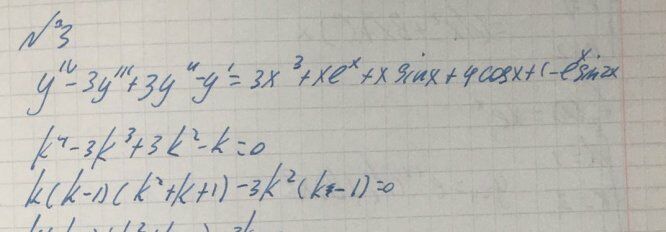 №3
y^IV - 3y''' + 3y'' - y' = 3x^3 + xe^x + x sinx + 4 cosx + (-e^x sin2x
k^4 - 3k^3 + 3k^2 - k = 0
k(k-1)(k^2+k+1) - 3k^2(k-1) = 0